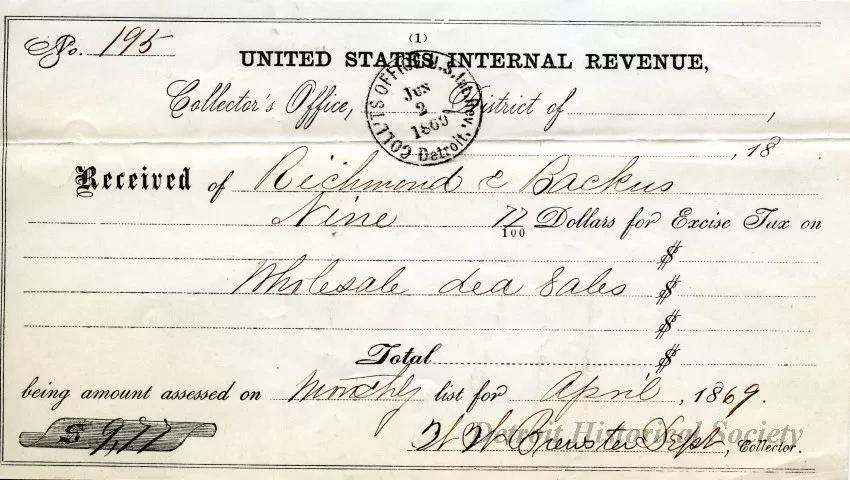 (1)
No. 195
UNITED STATES INTERNAL REVENUE,
Collector's Office, District of ,
COLL'TS OFFICE U.S. Int. Rev. Detroit.
JUN
2
1869
, 18 .
Received of Richmond & Backus
Nine 77/100 Dollars for Excise Tax on
$
Wholesale dea Sales $
$
Total $
being amount assessed on Monthly list for April , 1869.
$ 9,77
W Brewster Dept , Collector.
Detroit Historical Society